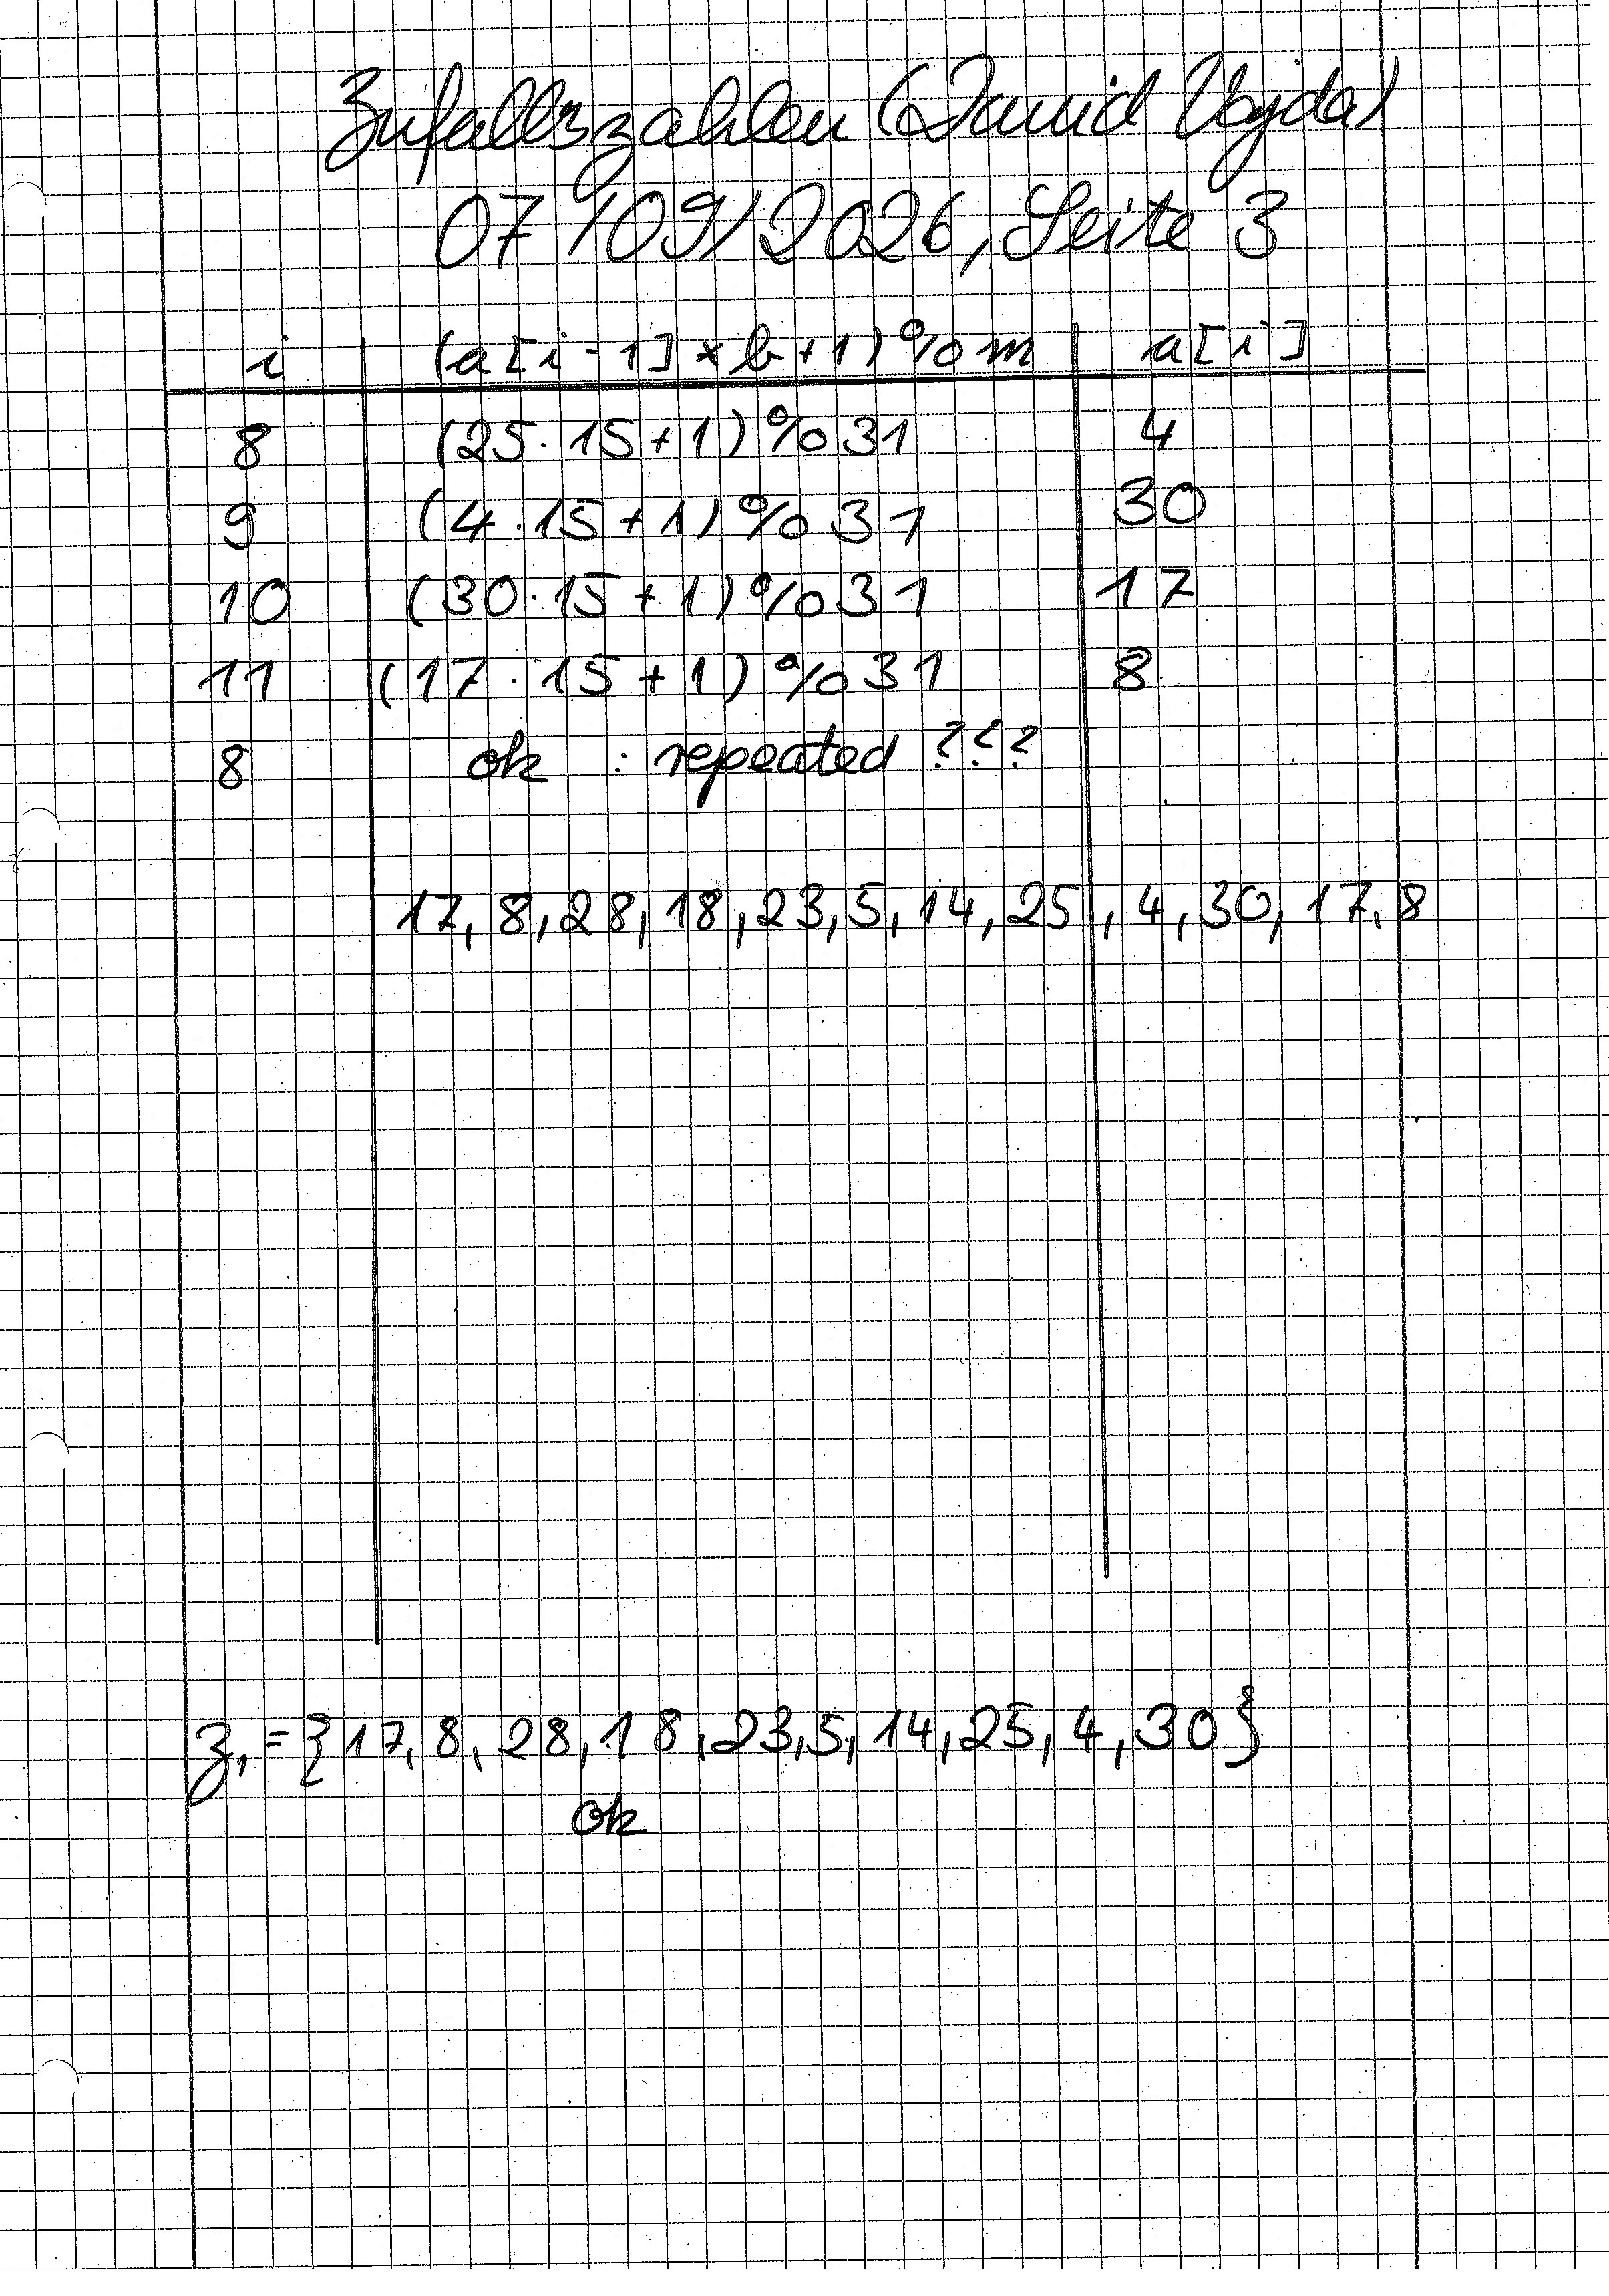 Zufallszahlen (David Vajda)
07/09/2026, Seite 3
i (a[i-1]*b+1)%m a[i]
8 (25·15+1)%31 4
9 (4·15+1)%31 30
10 (30·15+1)%31 17
11 (17·15+1)%31 8
8 ok : repeated ???
17, 8, 28, 18, 23, 5, 14, 25, 4, 30, 17, 8
z₁ = {17, 8, 28, 18, 23, 5, 14, 25, 4, 30}
ok